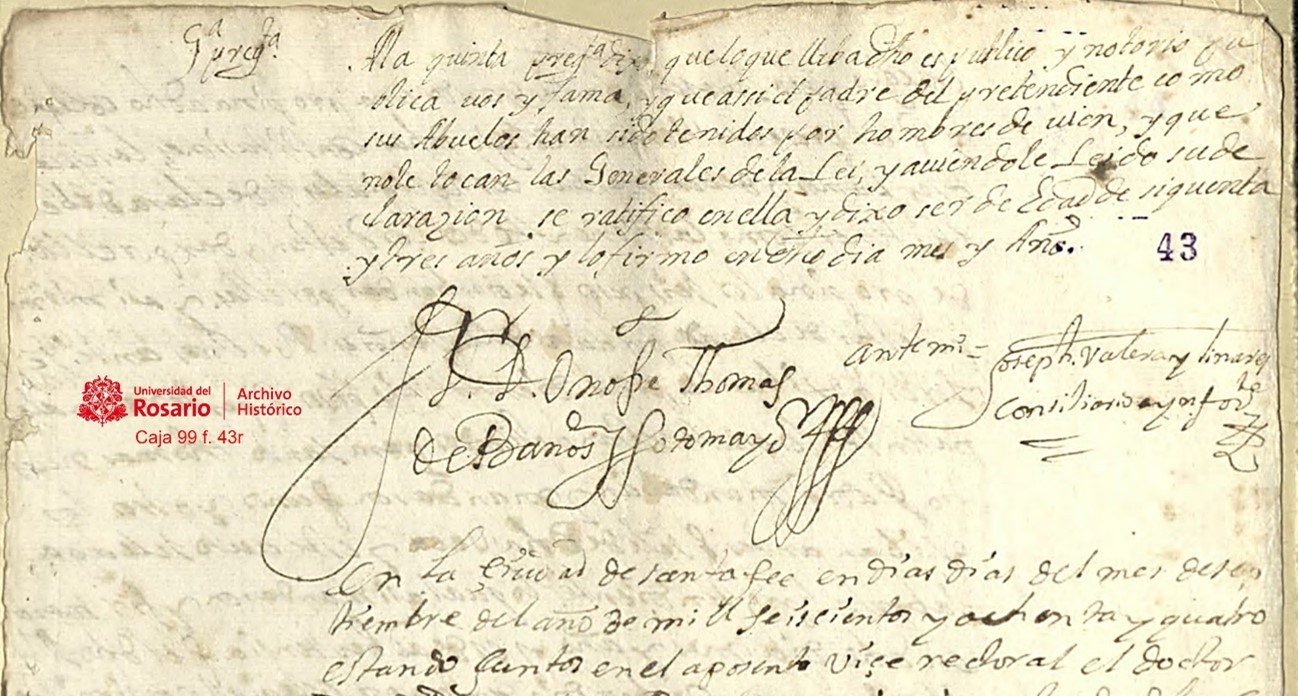 5ª pregᵗª
Ala quinta pregᵗª dixo, que lo que lleba dho es publico y notorio pu
blica vos y fama, y que assi el padre del pretendiente como
sus Abuelos han sido tenidos por hombres de vien, y que
nole tocan las Generales de la Lei, y aviendole Leido su de
Clarazion se ratifico en ella y dixo ser de Edad de siquenta
y tres años y lo firmo en dho dia mes y Año.
43
D. D. Onofre Thomas
de Baños y Sotomayor
ante mi =
Joseph. Valera y linares
Consiliario y
Universidad del
Rosario
Archivo
Histórico
Caja 99 f. 43r
En la Ciudad de santa fee en días días del mes de sep
tiembre del año de mill seiscientos y ochenta y quatro
estando Juntos en el aposento viçe rectoral el doctor